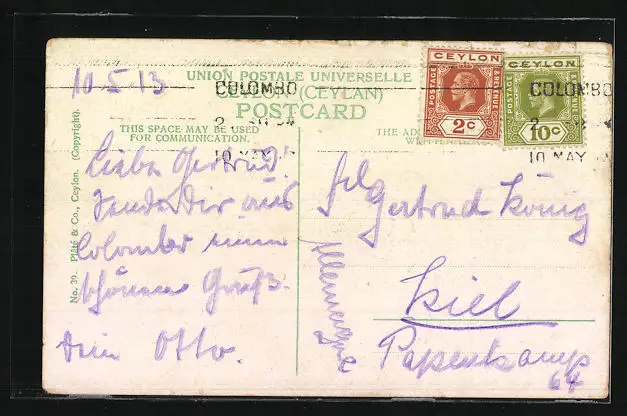 10.5.13
UNION POSTALE UNIVERSELLE
CEYLON (CEYLAN)
POSTCARD
THIS SPACE MAY BE USED
FOR COMMUNICATION.
THE AD
WRITTEN
COLOMBO
10 MAY
CEYLON
POSTAGE
& REVENUE
2C
CEYLON
POSTAGE
& REVENUE
10C
COLOMBO
10 MAY
No. 39. Plâté & Co., Ceylon. (Copyright).
Liebe Gertrud!
Sende Dir aus
Colombo einen
schönen Gruß.
Dein Otto.
Frl Gertrud König
Allemagne
Kiel
Papenkamp
64